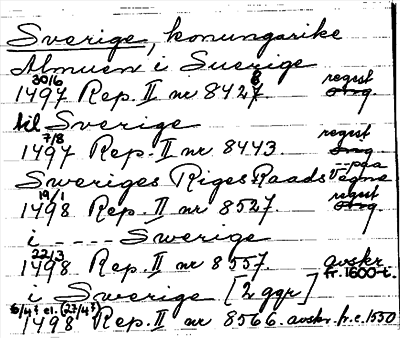 Sverige, konungarike
Almuen i Suerige
30/6 regest
1497 Rep. II nr 8428 orig.
til Sverige
7/8 regest
1497 Rep. II nr 8443 orig.
Sweriges Riges Raads Vegne --paa
19/1 regest
1498 Rep. II nr 8527. orig.
i - - - - Swerige
22/3 avskr.
1498 Rep. II nr 8557. fr. 1600-t.
i Swerige [2 ggr]
6/4? el. (27/4?)
1498 Rep. II nr 8566. avskr. fr. c. 1550